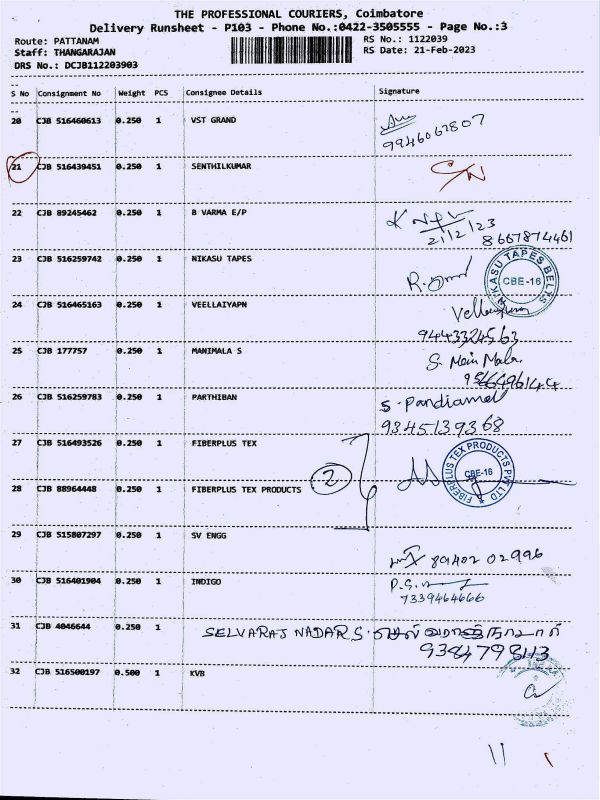 THE PROFESSIONAL COURIERS, Coimbatore
Delivery Runsheet - P103 - Phone No.:0422-3505555 - Page No.:3
Route: PATTANAM RS No.: 1122039
Staff: THANGARAJAN RS Date: 21-Feb-2023
DRS No.: DCJB112203903
S No Consignment No Weight PCS Consignee Details Signature
20 CJB 516460613 0.250 1 VST GRAND
9946067807
21 CJB 516439451 0.250 1 SENTHILKUMAR C/N
22 CJB 89245462 0.250 1 B VARMA E/P
21/2/23
8667874461
23 CJB 516259742 0.250 1 NIKASU TAPES
NIKASU TAPES BELTS CBE-16
24 CJB 516465163 0.250 1 VEELLAIYAPN
9443324563
25 CJB 177757 0.250 1 MANIMALA S S. Mani Mala
26 CJB 516259783 0.250 1 PARTHIBAN S. Pandiamal
9345139368
27 CJB 516493526 0.250 1 FIBERPLUS TEX
FIBERPLUS TEX PRODUCTS PVT LTD CBE-16
2
28 CJB 88964448 0.250 1 FIBERPLUS TEX PRODUCTS
29 CJB 515807297 0.250 1 SV ENGG
89402 02996
30 CJB 516401904 0.250 1 INDIGO
7339464666
31 CJB 4046644 0.250 1 SELVARAJ NADAR S.
9384798113
32 CJB 516500197 0.500 1 KVB
11